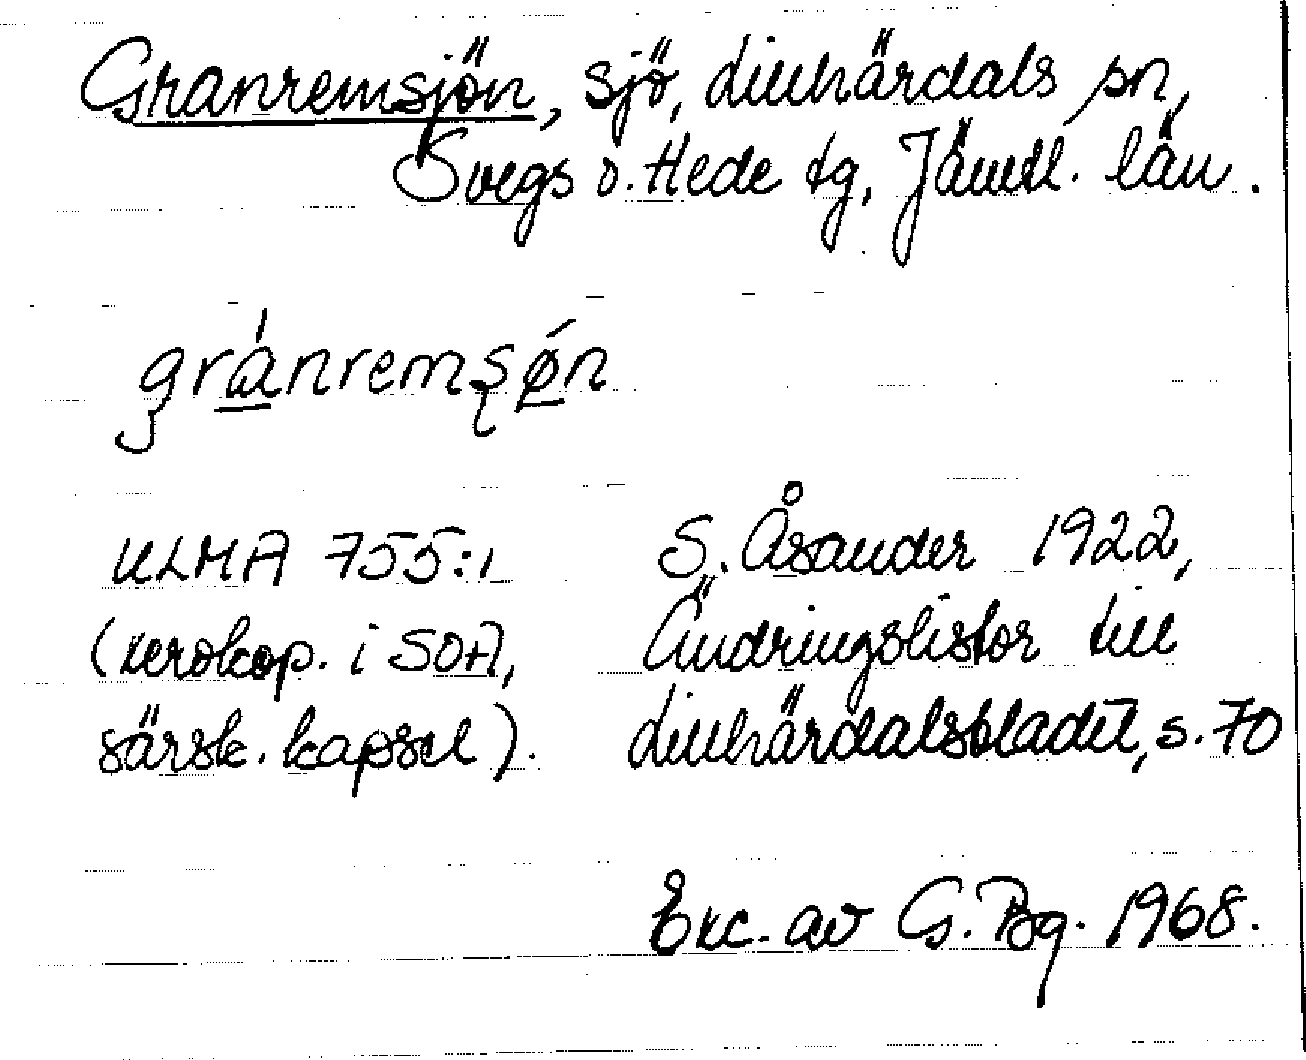 Granremsjön, sjö, Lillhärdals sn,
Svegs o. Hede tg, Jämtl. län.
gránremʂǿn
ULMA 755:1
(xerokop. i SOA,
särsk. kapsel).
S. Åsander 1922,
Ändringslistor till
Lillhärdalsbladet, s. 70
Exc. av G. Bg. 1968.